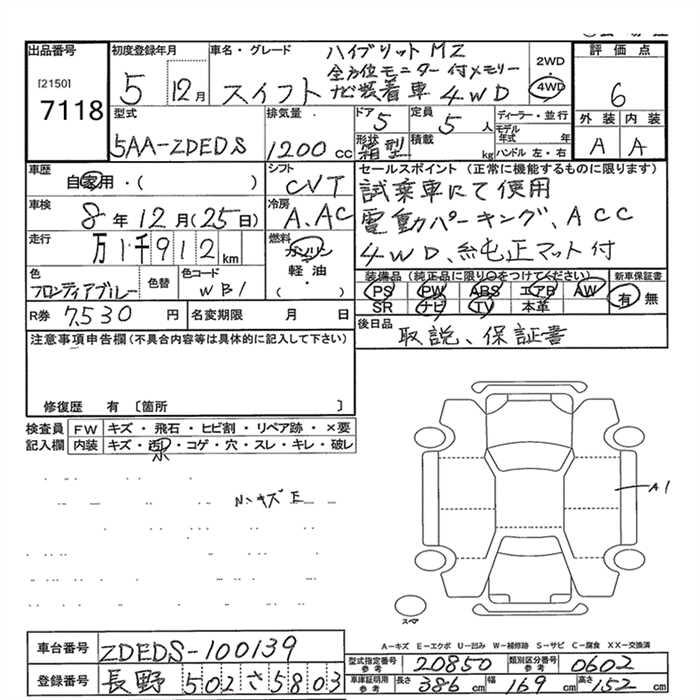 出品番号
[2150]
7118
初度登録年月
5 12月
車名・グレード
スイフト
ハイブリットMZ
全方位モニター付メモリー
ナビ装着車 4WD
2WD
・
4WD
評価点
6
外装 内装
A A
型式
5AA-ZDEDS
排気量
1200 cc
ドア 5
形状 箱型
定員 5 人
積載 kg
ディーラー・並行
モデル年式 年
ハンドル 左・右
車歴
自家用・( )
シフト
CVT
セールスポイント(正常に機能するものに限ります)
試乗車にて使用
電動パーキング、ACC
4WD、純正マット付
車検
8年12月(25日)
冷房
A.AC
走行
万1千912km
燃料
ガソリン
軽油
( ・ )
色
フロンティアブルー
色替
色コード
WB1
装備品(純品に限り○をつけてください)
PS PW ABS エアB AW
SR ナビ TV 本革
新車保証書
有 無
R券 7,530 円
名変期限 月 日
後日品
取説、保証書
注意事項申告欄(不具合内容等は具体的に記入して下さい)
修復歴 有〔箇所 〕
検査員記入欄
FW キズ・飛石・ヒビ割・リペア跡・×要
内装 キズ・汚・コゲ・穴・スレ・キレ・破レ
キズE
A1
スペア
A-キズ E-エクボ U-凹み W-補修跡 S-サビ C-腐食 XX-交換済
車台番号 ZDEDS-100139
登録番号 長野 502 さ 5803
型式指定番号 参考 20850
類別区分番号 参考 0602
車庫証明用 参考 長さ 386 cm 幅 169 cm 高さ 152 cm